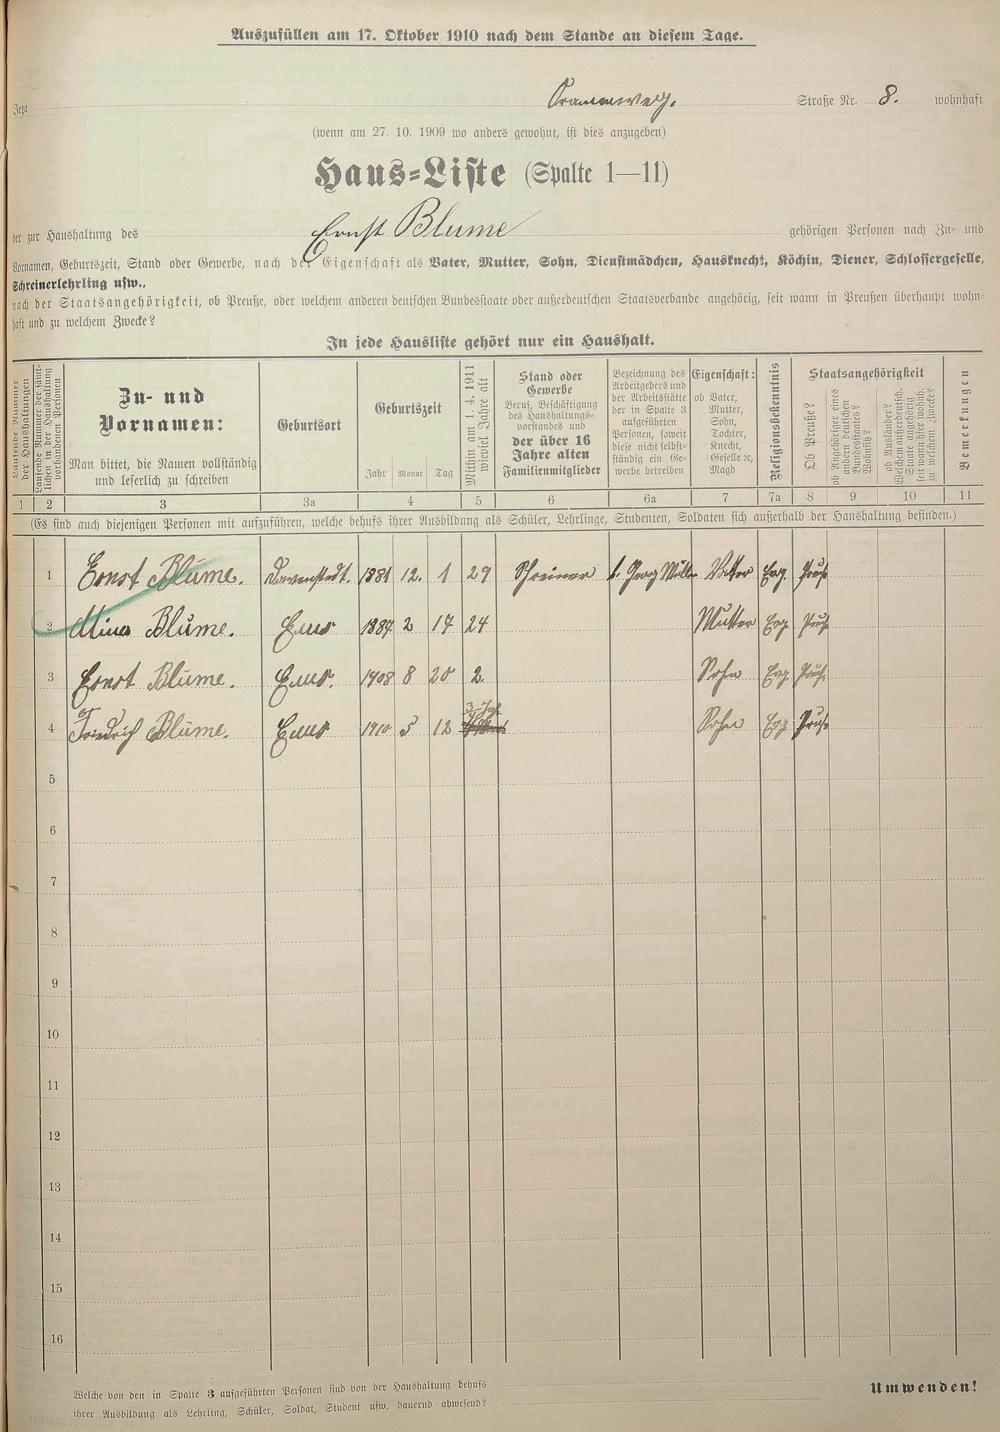 Auszufüllen am 17. Oktober 1910 nach dem Stande an diesem Tage.
Jetzt Straße Nr. 8. wohnhaft
(wenn am 27. 10. 1909 wo anders gewohnt, ist dies anzugeben)
Haus-Liste (Spalte 1—11)
der zur Haushaltung des Ernst Blume gehörigen Personen nach Zu- und
Vornamen, Geburtszeit, Stand oder Gewerbe, nach der Eigenschaft als Vater, Mutter, Sohn, Dienstmädchen, Hausknecht, Köchin, Diener, Schlossergeselle,
Schreinerlehrling usw.,
nach der Staatsangehörigkeit, ob Preuße, oder welchem anderen deutschen Bundesstaate oder außerdeutschen Staatsverbande angehörig, seit wann in Preußen überhaupt wohn-
haft und zu welchem Zwecke?
In jede Hausliste gehört nur ein Haushalt.
Laufende Nummer
der Haushaltungen
Laufende Nummer der sämt-
lichen in der Haushaltung
vorhandenen Personen
Zu- und
Vornamen:
Man bittet, die Namen vollständig
und leserlich zu schreiben
Geburtsort
Geburtszeit
Jahr Monat Tag
Mithin am 1. 4. 1911
wieviel Jahre alt
Stand oder
Gewerbe
Beruf, Beschäftigung
des Haushaltungs-
vorstandes und
der über 16
Jahre alten
Familienmitglieder
Bezeichnung des
Arbeitgebers und
der Arbeitstätte
der in Spalte 3
aufgeführten
Personen, soweit
diese nicht selbst-
ständig ein Ge-
werbe betreiben
Eigenschaft:
ob Vater,
Mutter,
Sohn,
Tochter,
Knecht,
Geselle ꝛc,
Magd
Religionsbekenntnis
Staatsangehörigkeit
Ob Preuße?
ob Angehöriger eines
andern deutschen
Bundesstaates?
Wohnsitz?
ob Ausländer?
Welchem außerdeutsch.
Staate angehörig,
seit wann hier wohnh.
zu welchem Zwecke?
Bemerkungen
1 2 3 3a 4 5 6 6a 7 7a 8 9 10 11
(Es sind auch diejenigen Personen mit aufzuführen, welche behufs ihrer Ausbildung als Schüler, Lehrlinge, Studenten, Soldaten sich außerhalb der Haushaltung befinden.)
1 Ernst Blume. 1881 12. 1 29 Schreiner b. Georg Müller Vater Evg. Preuß.
2 Mina Blume. Ems 1887 2 17 24 Mutter Evg. Preuß.
3 Ernst Blume. Ems. 1908 8 20 2 Sohn Evg. Preuß.
4 Friedrich Blume. Ems 1910 5 12 Sohn Evg. Preuß.
5
6
7
8
9
10
11
12
13
14
15
16
Welche von den in Spalte 3 aufgeführten Personen sind von der Haushaltung behufs
ihrer Ausbildung als Lehrling, Schüler, Soldat, Student usw. dauernd abwesend?
Umwenden!